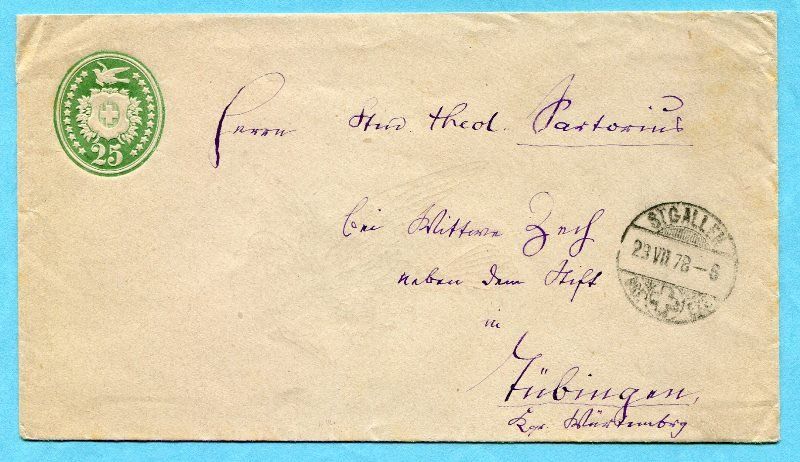 25
Herrn Stud. theol. Sartorius
bei Wittwe Zech
neben dem Stift
in
Tübingen,
Kgr. Würtembrg
ST.GALLEN
29 VII 78 – 6